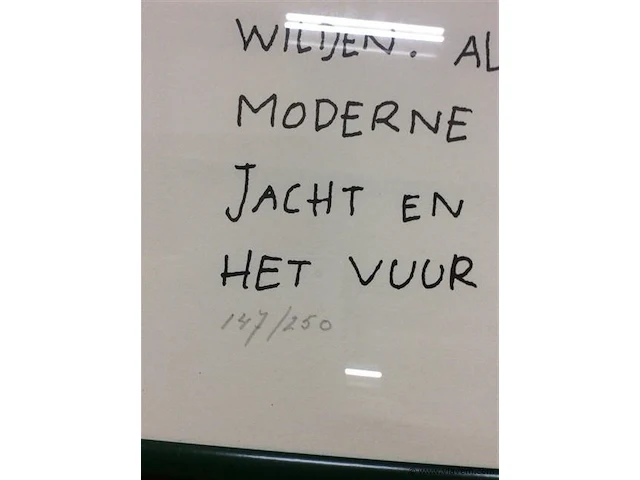 WILDEN. AL
MODERNE
JACHT EN
HET VUUR
147/250